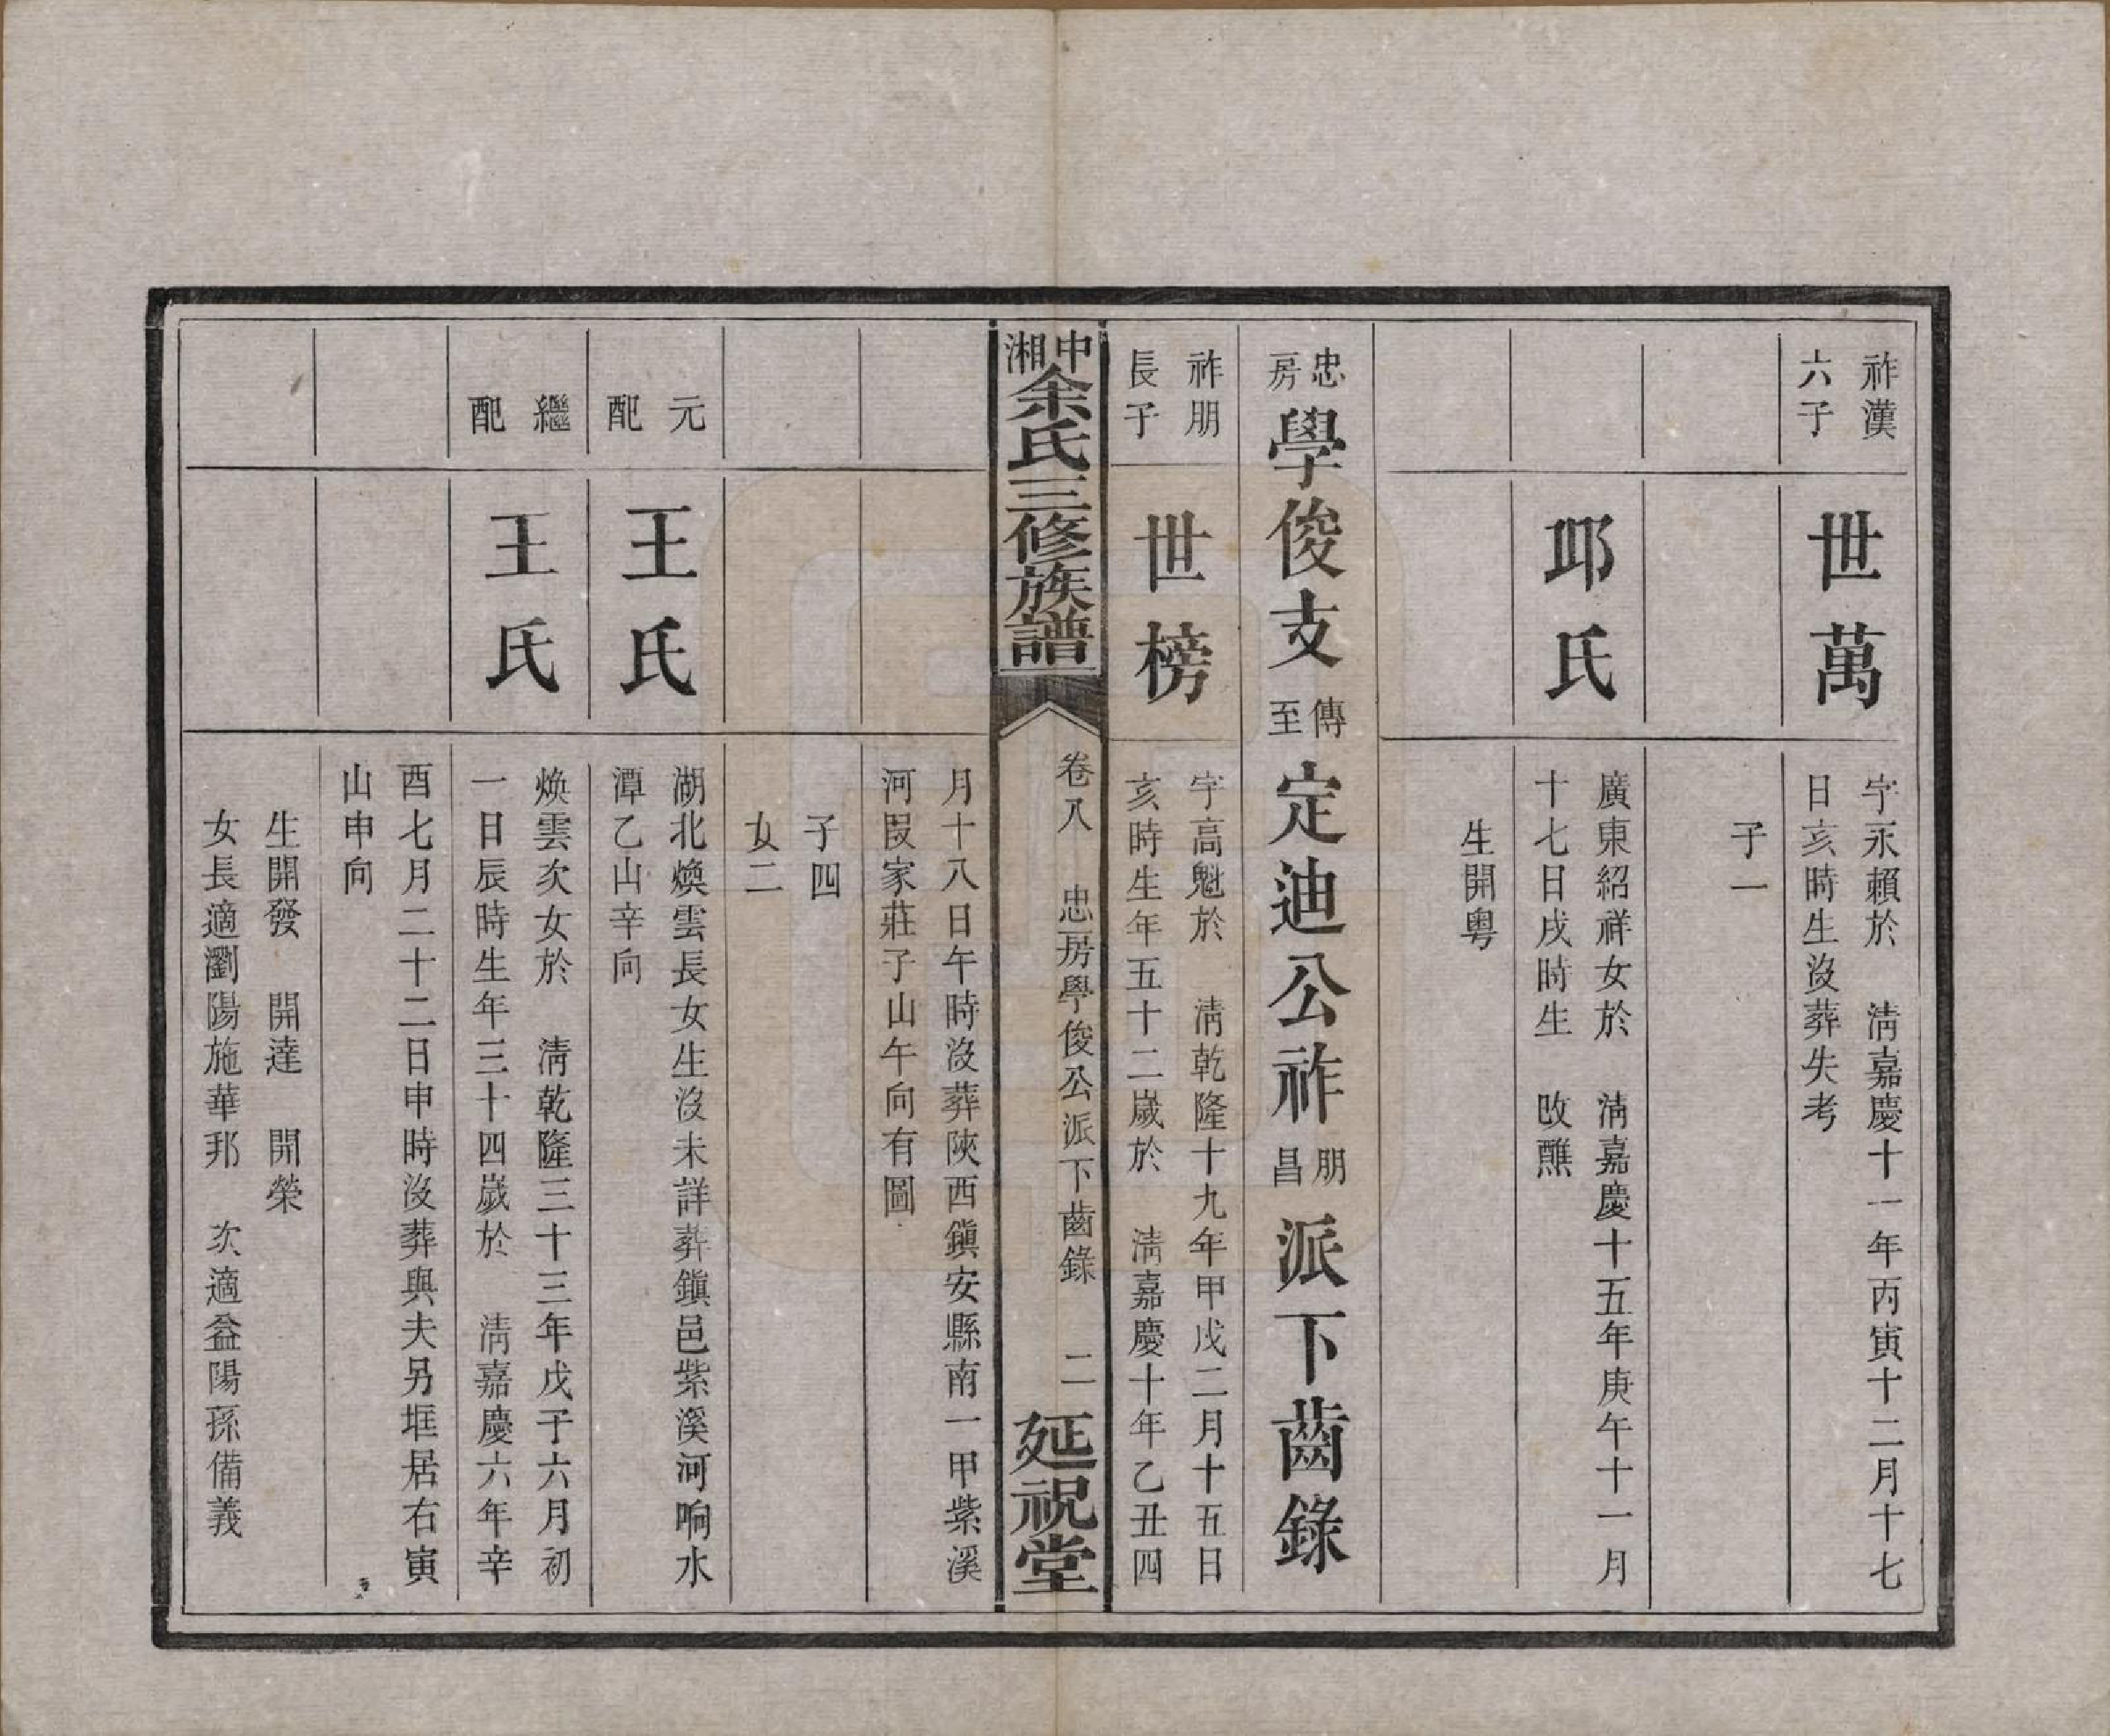 祚漢
六子
世萬
字永賴於　淸嘉慶十一年丙寅十二月十七
日亥時生沒葬失考
子一
邱氏
廣東紹祥女於　淸嘉慶十五年庚午十一月
十七日戌時生　改醮
生開粵
忠房學俊支傳至定迪公祚朋昌派下齒錄
祚朋
長子
世榜
字高魁於　淸乾隆十九年甲戌二月十五日
亥時生年五十二歲於　淸嘉慶十年乙丑四
中湘余氏三修族譜
卷八　忠房學俊公派下齒錄　二
延祝堂
月十八日午時沒葬陝西鎭安縣南一甲紫溪
河叚家莊子山午向有圖
子四
女二
元配
王氏
湖北煥雲長女生沒未詳葬鎭邑紫溪河响水
潭乙山辛向
繼配
王氏
煥雲次女於　淸乾隆三十三年戊子六月初
一日辰時生年三十四歲於　淸嘉慶六年辛
酉七月二十二日申時沒葬與夫另㘭居右寅
山申向
生開發　開達　開榮
女長適瀏陽施華邦　次適益陽孫備義